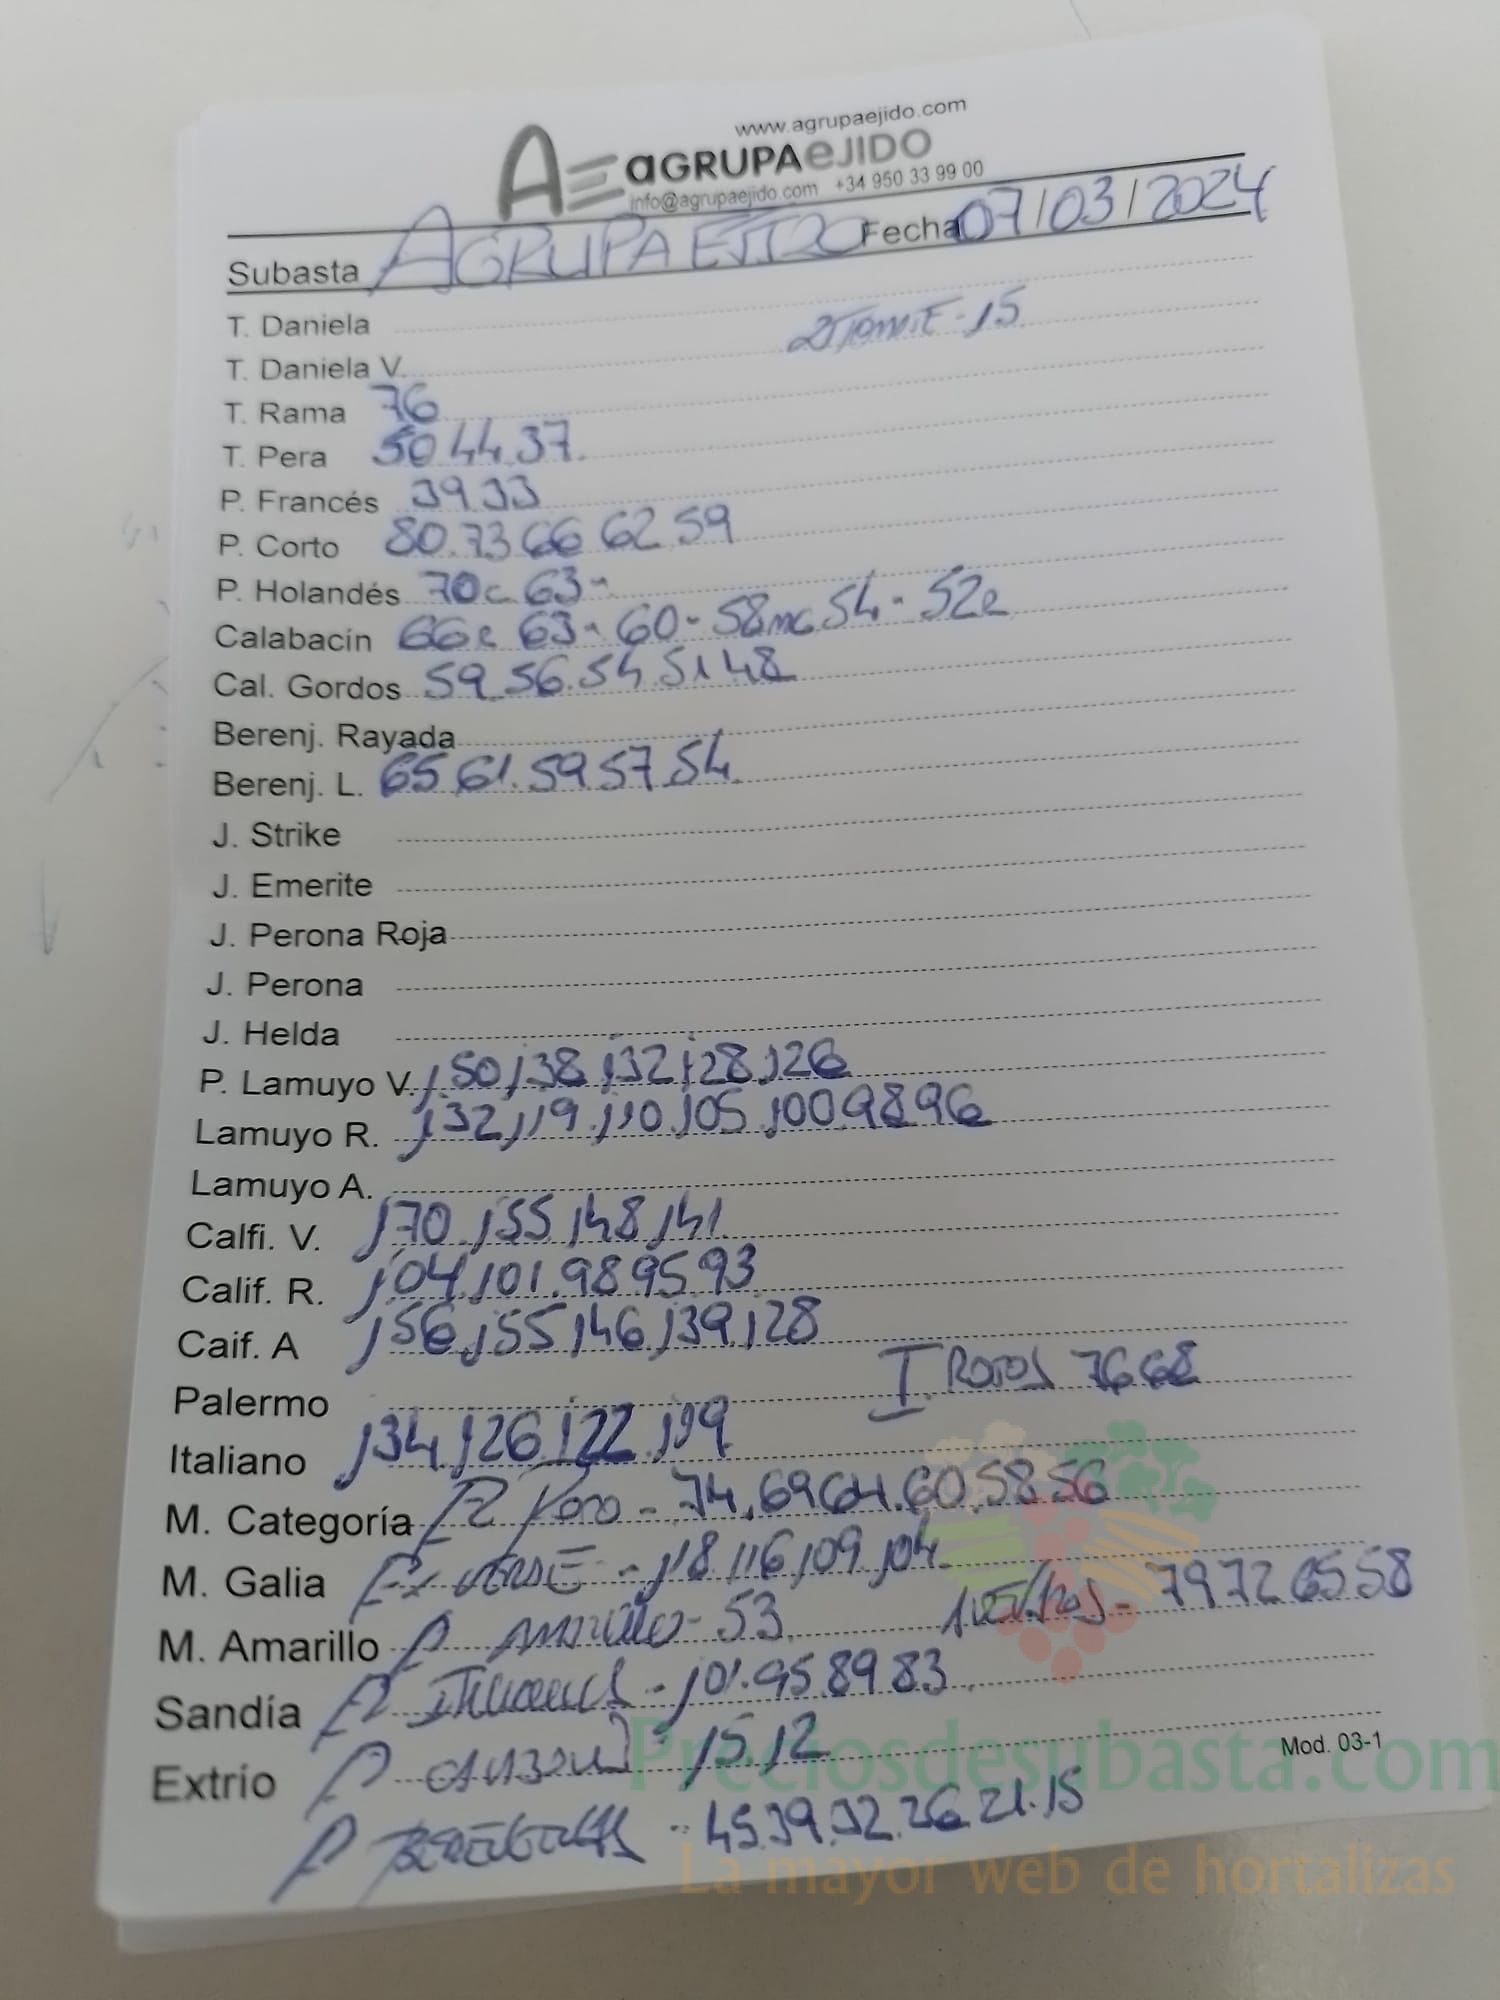 www.agrupaejido.com
AGRUPAEJIDO
info@agrupaejido.com +34 950 33 99 00
Subasta AGRUPAEJIDO Fecha 07/03/2024
T. Daniela
15
T. Daniela V.
T. Rama 76
T. Pera 50 44 37
P. Francés 39 33
P. Corto 80 73 66 62 59
P. Holandés 70c 63-
Calabacín 66c 63- 60- 58mc 54- 52c
Cal. Gordos 59 56 54 51 48
Berenj. Rayada
Berenj. L. 65 61 59 57 54
J. Strike
J. Emerite
J. Perona Roja
J. Perona
J. Helda
P. Lamuyo V. 150 138 132 128 126
Lamuyo R. 132 119 110 105 100 98 96
Lamuyo A.
Calfi. V. 170 155 148 141
Calif. R. 104 101 98 95 93
Caif. A 156 155 146 139 128
Palermo I. ROJOS 76 68
Italiano 134 126 122 119
M. Categoría P Rojo - 74 69 64 60 58 56
M. Galia P VERDE - 118 116 109 104
M. Amarillo P AMARILLO - 53 79 72 65 58
Sandía P - 101 95 89 83
Extrio P 15 12
Mod. 03-1
P - 45 39 32 26 21 15
Preciosdesubasta.com
La mayor web de hortalizas